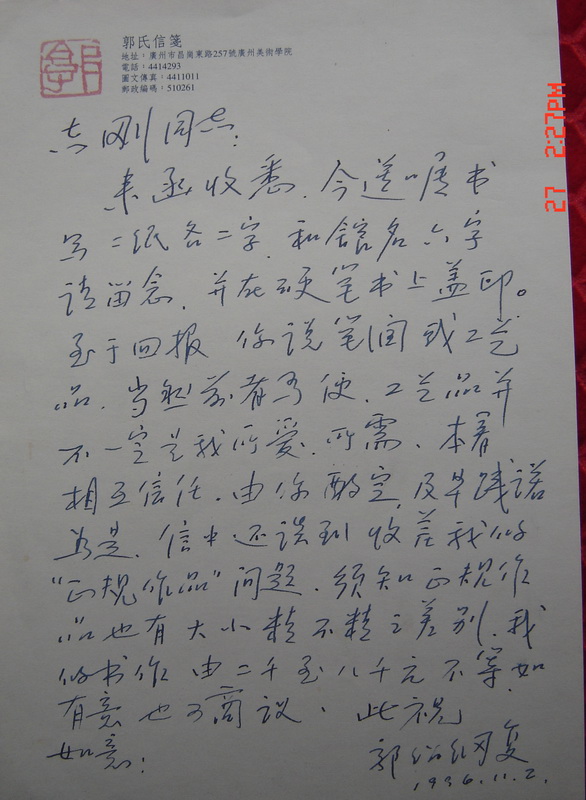 郭氏信箋
地址：廣州市昌崗東路257號廣州美術學院
電話：4414293
圖文傳真：4411011
郵政編碼：510261
2:27PM
27
志刚同志：
来函收悉，今送嘱书
写二纸各二字，和馆名六字
请留念，并在硬笔书上盖印。
至于回报 你说笔润或工艺
品，当然前者为便，工艺品并
不一定是我所爱，所需，本着
相互信任，由你酌定，及早践诺
为是，信中还谈到收差我的
“正规作品”问题，须知正规作
品也有大小精不精之差别，我
的书作由二千至八千元不等，如
有意也可商议，此祝
如意！
郭绍纲复
1996.11.2.